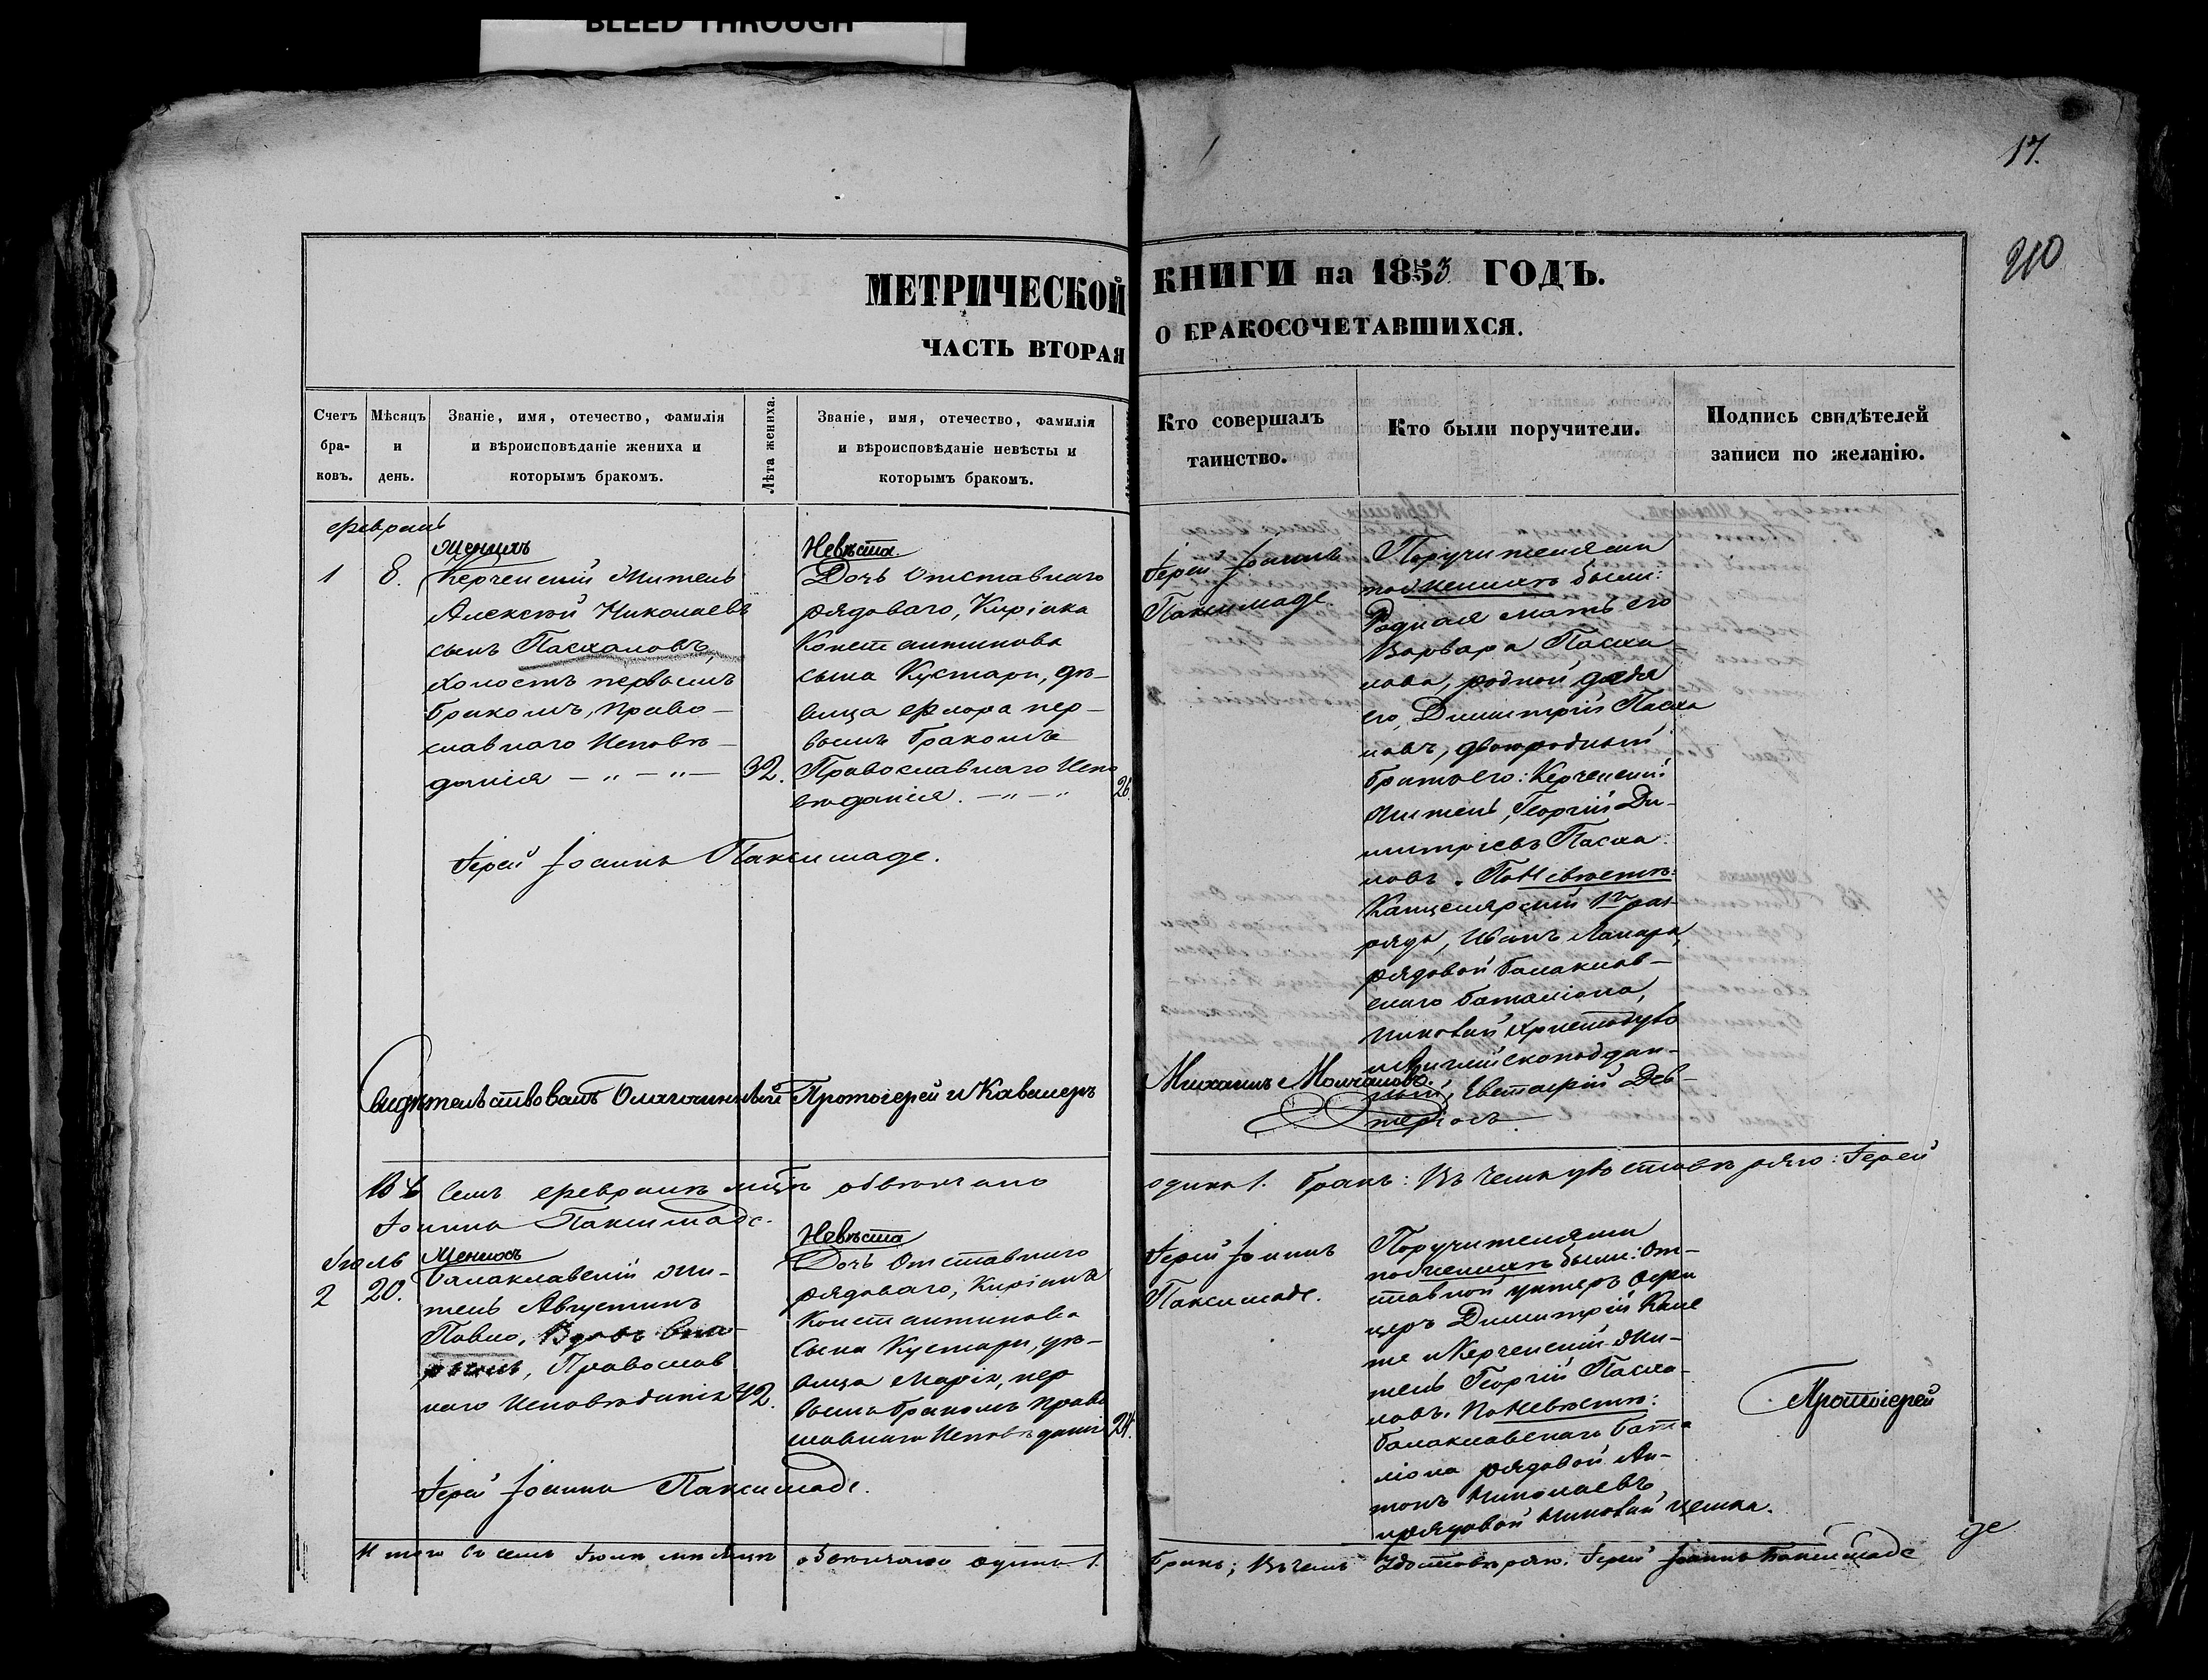 BLEED THROUGH
17.
210
МЕТРИЧЕСКОЙ КНИГИ на 1853 ГОДЪ.
ЧАСТЬ ВТОРАЯ О БРАКОСОЧЕТАВШИХСЯ.
Счетъ бра-ковъ.
Мѣсяцъ и день.
Званіе, имя, отечество, фамилія
и вѣроисповѣданіе жениха и
которымъ бракомъ.
Лѣта жениха.
Званіе, имя, отечество, фамилія
и вѣроисповѣданіе невѣсты и
которымъ бракомъ.
Кто совершалъ
таинство.
Кто были поручители.
Подпись свидѣтелей
записи по желанію.
февраль
1 8.
Женихъ
Керченскій Житель
Алексѣй Николаевъ
сынъ Пасхаловъ,
холостъ первымъ
бракомъ, право-
славнаго Исповѣ-
данія — „ — „ — 32.
Невѣста.
Дочь Отставнаго
рядоваго, Киріака
Константинова
сына Кустари, дѣ-
вица Флора пер-
вымъ бракомъ
Православнаго Испо
вѣданія. — „ — „ 26.
Іерей Іоаннъ
Паксимаде.
Поручителями
по женихѣ были:
Родная мать его
Варвара Пасха-
лова, родной дядя
его, Димитрій Пасха
ловъ, двоюродный
братъ его: Керченскій
Житель, Георгій Ди-
митріевъ Пасха-
ловъ. По Невѣстѣ:
Канцелярскій 1го раз-
ряда, Иванъ
рядовой Балаклав-
скаго баталіона,
Николай Христодуло
подан-
ный, Евстафій Лев-
теріовъ.
Іерей Іоаннъ Паксимаде.
Свидѣтельствовалъ Благочинный Протоіерей и Кавалеръ Михаилъ Молчановъ.
Въ семъ февралѣ м-цѣ обвѣнчано одинъ 1. бракъ: Въ чемъ удостовѣряю: Іерей
Іоаннъ Паксимаде.
Іюль
2 20.
Женихъ
Балаклавскій жи-
тель Августинъ
Павло, Вдовъ вто-
рымъ, Православ
наго Исповѣданія 42.
Невѣста
Дочь Отставнаго
рядоваго, Киріака
Константинова
Сына Кустари, дѣ-
вица Марія, пер
вымъ бракомъ Право
славнаго Исповѣданія 24.
Іерей Іоаннъ
Паксимаде.
Поручителями
по женихѣ были: От-
ставной унтеръ офи
церъ Димитрій Капе
те и Керченскій Жи-
тель Георгій Пасха-
ловъ. По Невѣстѣ:
Балаклавскаго бата
ліона рядовой Ан-
тонъ Николаевъ
и рядовой Николай Цемка.
Протоіерей
Іерей Іоаннъ Паксимаде.
Итого въ семъ Іюлѣ мѣсяцѣ обвѣнчано одинъ 1. бракъ; Въ чемъ удостовѣряю: Іерей Іоаннъ Паксимаде